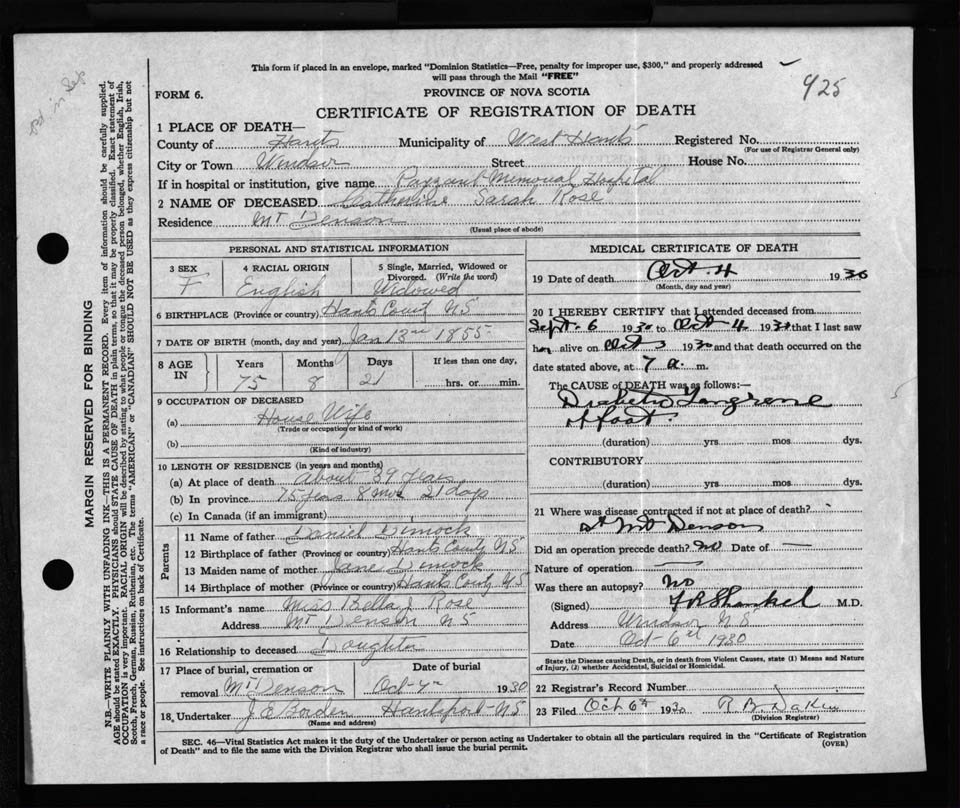 This form if placed in an envelope, marked "Dominion Statistics—Free, penalty for improper use, $300," and properly addressed
will pass through the Mail "FREE"
925
FORM 6.
PROVINCE OF NOVA SCOTIA
CERTIFICATE OF REGISTRATION OF DEATH
1 PLACE OF DEATH—
County of Hants Municipality of West Hants Registered No.
(For use of Registrar General only)
City or Town Windsor Street House No.
If in hospital or institution, give name Payzant Memorial Hospital
2 NAME OF DECEASED Catherine Sarah Rose
Residence Mt Denson
(Usual place of abode)
PERSONAL AND STATISTICAL INFORMATION
3 SEX 4 RACIAL ORIGIN 5 Single, Married, Widowed or
Divorced. (Write the word)
F English Widowed
6 BIRTHPLACE (Province or country) Hants County NS
7 DATE OF BIRTH (month, day and year) Jan 13th 1855
8 AGE IN Years Months Days If less than one day,
75 8 21 hrs. or min.
9 OCCUPATION OF DECEASED
(a) House Wife
(Trade or occupation or kind of work)
(b)
(Kind of industry)
10 LENGTH OF RESIDENCE (in years and months)
(a) At place of death About 39 years
(b) In province 75 years 8 mos 21 days
(c) In Canada (if an immigrant)
Parents
11 Name of father Daniel Dimock
12 Birthplace of father (Province or country) Hants County NS
13 Maiden name of mother Jane Dimock
14 Birthplace of mother (Province or country) Hants County NS
15 Informant's name Miss Bella J Rose
Address Mt Denson NS
16 Relationship to deceased Doughter
17 Place of burial, cremation or Date of burial
removal Mt Denson Oct 1930
18 Undertaker J E Borden Hantsport NS
(Name and address)
MEDICAL CERTIFICATE OF DEATH
19 Date of death Oct. 4 1930
(Month, day and year)
20 I HEREBY CERTIFY that I attended deceased from
Sept. 6 1930 to Oct 4 1930 that I last saw
her alive on Oct 3 1930 and that death occurred on the
date stated above, at 7 a. m.
The CAUSE of DEATH was as follows:—
Diabetic Gangrene
of foot.
(duration) yrs mos dys.
CONTRIBUTORY
(duration) yrs mos dys.
21 Where was disease contracted if not at place of death?
at Mt Denson
Did an operation precede death? no Date of —
Nature of operation —
Was there an autopsy? no
(Signed) F R Shankel M.D.
Address Windsor N.S
Date Oct 6th 1930
State the Disease causing Death, or in death from Violent Causes, state (1) Means and Nature
of Injury, (2) whether Accidental, Suicidal or Homicidal.
22 Registrar's Record Number
23 Filed Oct 6th 1930 R. B. Dakin
(Division Registrar)
SEC. 46—Vital Statistics Act makes it the duty of the Undertaker or person acting as Undertaker to obtain all the particulars required in the "Certificate of Registration
of Death" and to file the same with the Division Registrar who shall issue the burial permit.
(OVER)
MARGIN RESERVED FOR BINDING
N.B.—WRITE PLAINLY WITH UNFADING INK—THIS IS A PERMANENT RECORD. Every item of information should be carefully supplied.
AGE should be stated EXACTLY. PHYSICIANS should STATE CAUSE OF DEATH in plain terms, so that it may be properly classified. Exact statement of
OCCUPATION is very important. RACIAL ORIGIN will be described by stating to what people or tongue the deceased person belonged, whether English, Irish,
Scotch, French, German, Russian, Ruthenian, etc. The terms "AMERICAN" or "CANADIAN" SHOULD NOT BE USED as they express citizenship but not
a race or people. See instructions on back of Certificate.